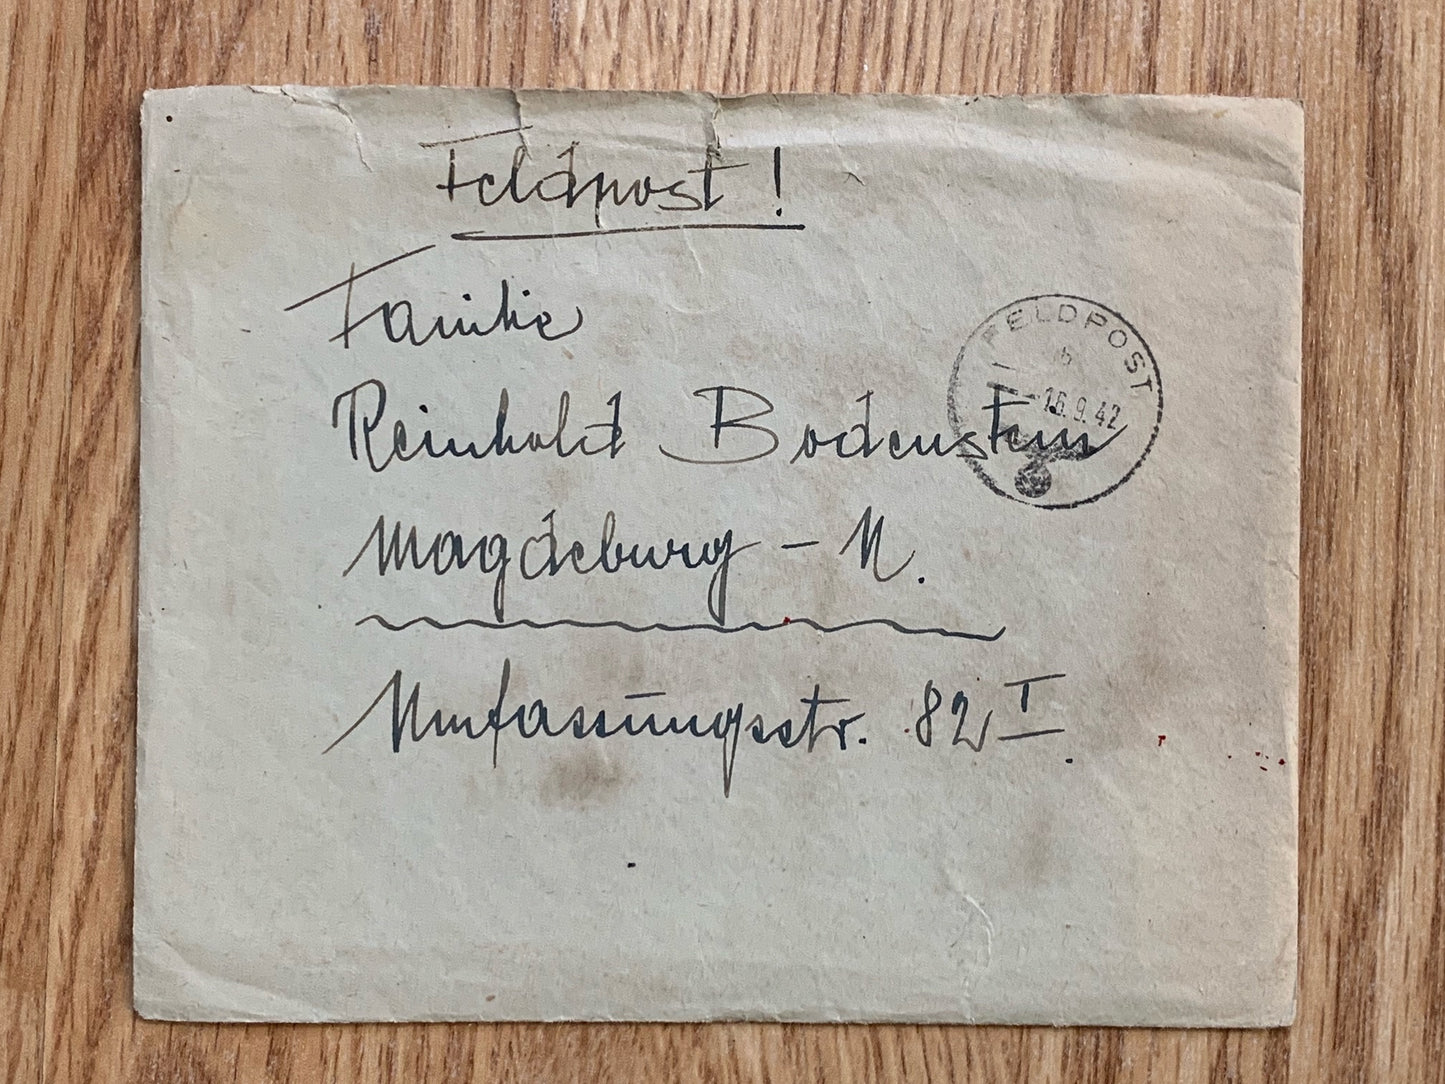 Feldpost!
Familie
Reinhold Bodenstein
FELDPOST
b
16.9.42
Magdeburg - N.
Umfassungsstr. 82 I.